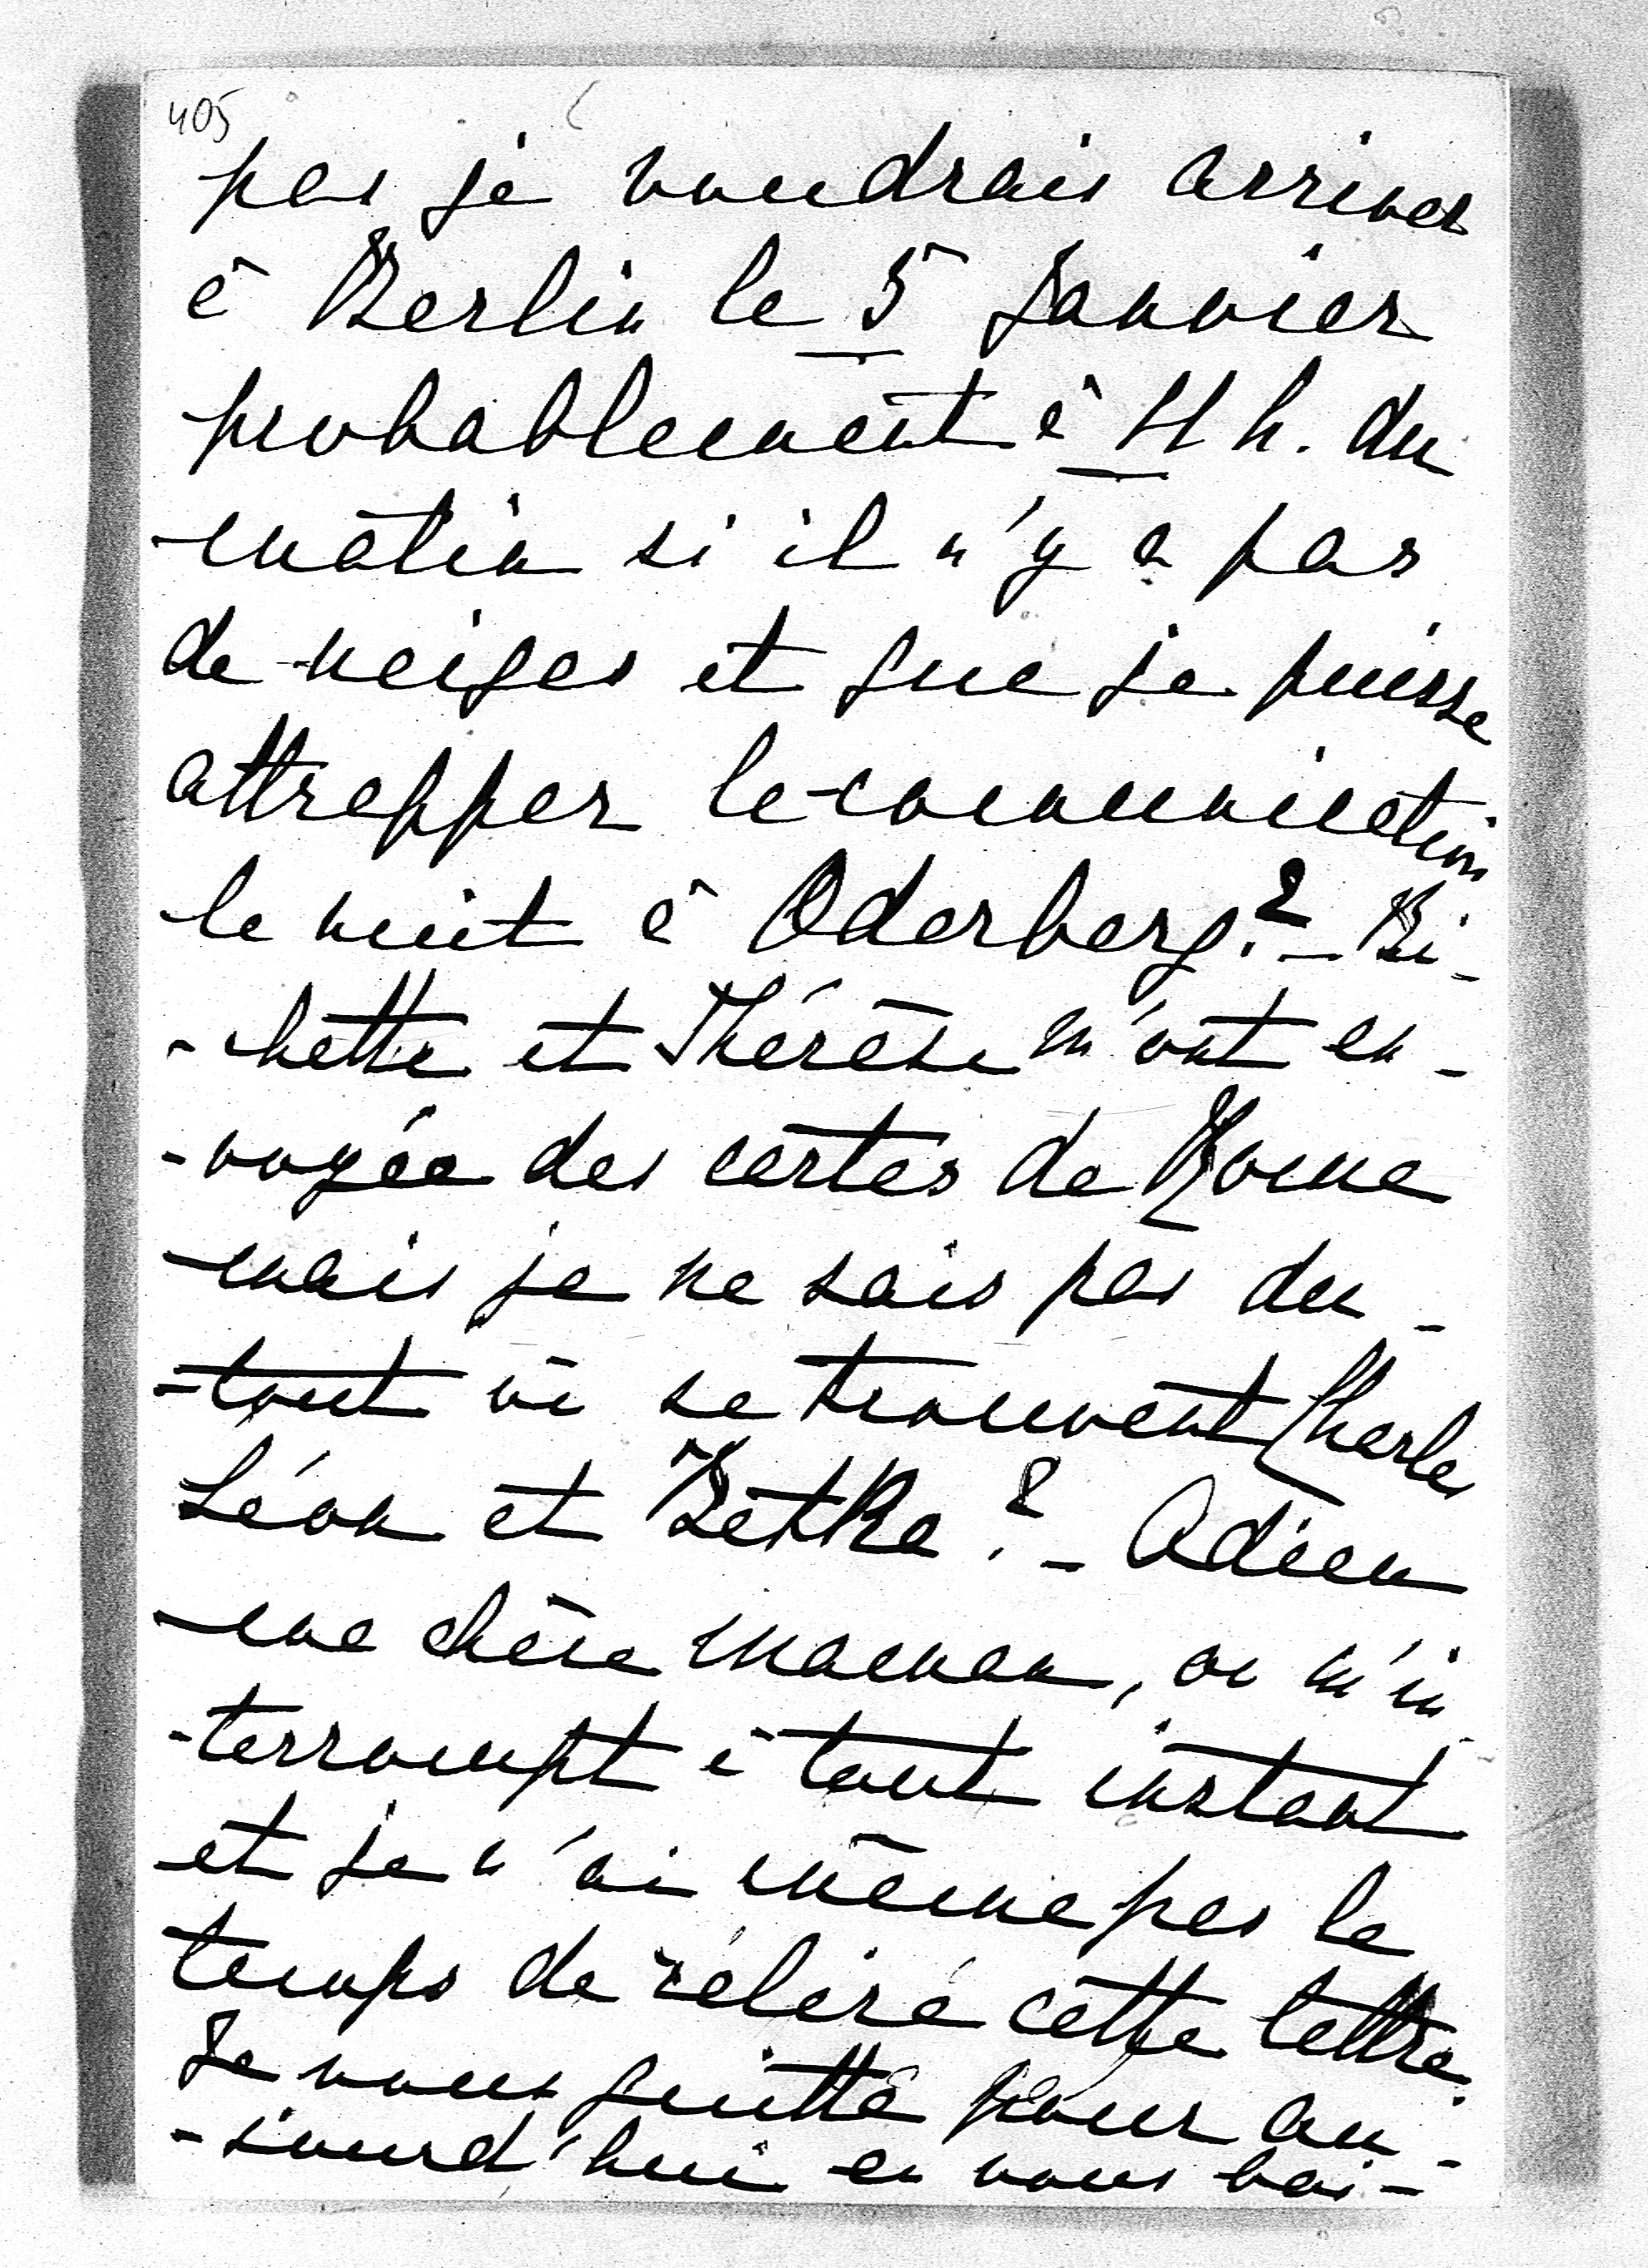 405
pas je voudrais arriver
à Berlin le 5 Janvier
probablement à 11 h. du
matin si il n'y a pas
de neiges et que je puisse
attrapper la communication
la nuit à Oderberg? – Bi-
-chette et Thérèse m'ont en-
-voyée des cartes de Rome
mais je ne sais pas du-
-tout où se trouvent Charles
Léon et Betka? – Adieu
ma chère maman, on m'in-
-terrompt à tout instant
et je n'ai même pas le
temps de réliré cette lettre.
Je vous quitte pour au-
-jourd'hui en vous bai-